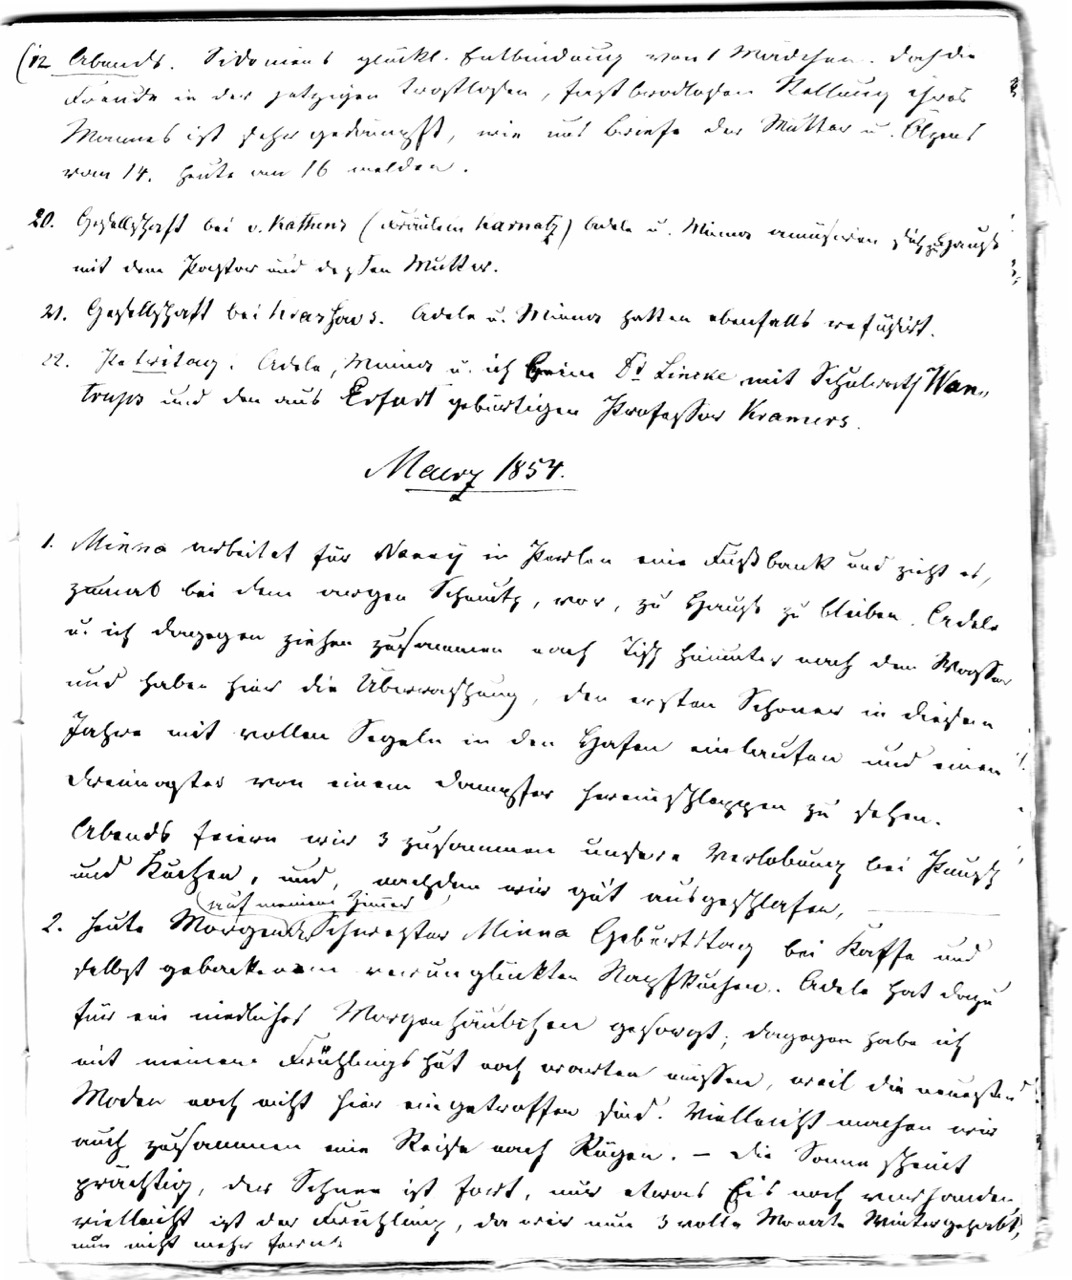 (12 Abends. Sidoniens glückl. Entbindung von 1 Mädchen. Doch die
Freude in der jetzigen trostlosen, fast brodlosen Stellung ihres
Mannes ist sehr gedämpft, wie uns Briefe der Mutter u. Olgens
vom 14. heute am 16 melden.
20. Gesellschaft bei v. Kathens (Fräulein Karnatz) Adele u. Minna amüsiren sich zu Hause
mit dem Pastor und dessen Mutter.
21. Gesellschaft bei . Adele u. Minna hatten ebenfalls refüsirt.
22. Petritag. Adele, Minna u. ich beim Dr Lincke mit Schulrath Wan„
trups und den aus Erfurt gebürtigen Professor Kramers.
Maerz 1854.
1. Minna arbeitet für Nanny in Perlen eine Fußbank und zieht es,
zumal bei dem argen Schmutz, vor, zu Hause zu bleiben. Adele
u. ich dagegen ziehen zusammen nach Tisch hinunter nach dem Wasser
und haben hier die Überraschung, den ersten Schoner in diesem
Jahre mit vollen Segeln in den Hafen einlaufen und einen
Dreimaster von einem Dampfer hereinschleppen zu sehen.
Abends feiern wir 3 zusammen unsere Verlobung bei Punsch
und Kuchen, und, nachdem wir gut ausgeschlafen,
auf meinem Zimmer
2. heute Morgen Schwester Minna Geburtstag bei Kaffe und
selbst gebackenem verunglückten Napfkuchen. Adele hat dazu
für ein niedliches Morgenhäubchen gesorgt; dagegen habe ich
mit meinem Frühlingshut noch warten müssen, weil die neuesten
Moden noch nicht hier eingetroffen sind. Vielleicht machen wir
auch zusammen eine Reise nach Rügen. – Die Sonne scheint
prächtig, der Schnee ist fort, nur etwas Eis noch vorhanden,
vielleicht ist der Frühling, da wir nun 3 volle Monate Winter gehabt,
nun nicht mehr fern.